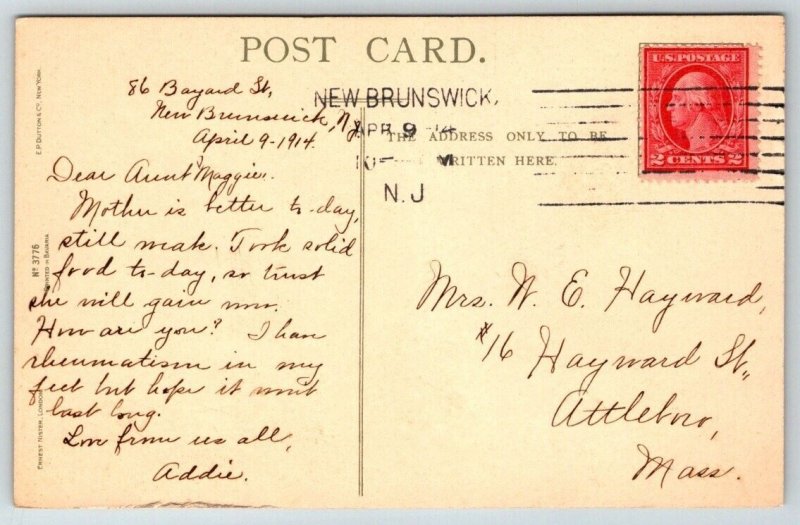 POST CARD.
86 Bayard St,
New Brunswick, N.J.
April 9-1914.
Dear Aunt Maggie:
Mother is better to-day,
still weak. Took solid
food to-day, so trust
she will gain now.
How are you? I have
rheumatism in my
feet but hope it won't
last long.
Love from us all,
Addie.
NEW BRUNSWICK,
APR 9 14
N.J
THE ADDRESS ONLY TO BE
WRITTEN HERE.
U.S. POSTAGE
2 CENTS 2
Mrs. W. E. Hayward,
#16 Hayward St.,
Attleboro,
Mass.
E.P. DUTTON & Co. NEW YORK.
No 3776
PRINTED IN BAVARIA
ERNEST NISTER, LONDON